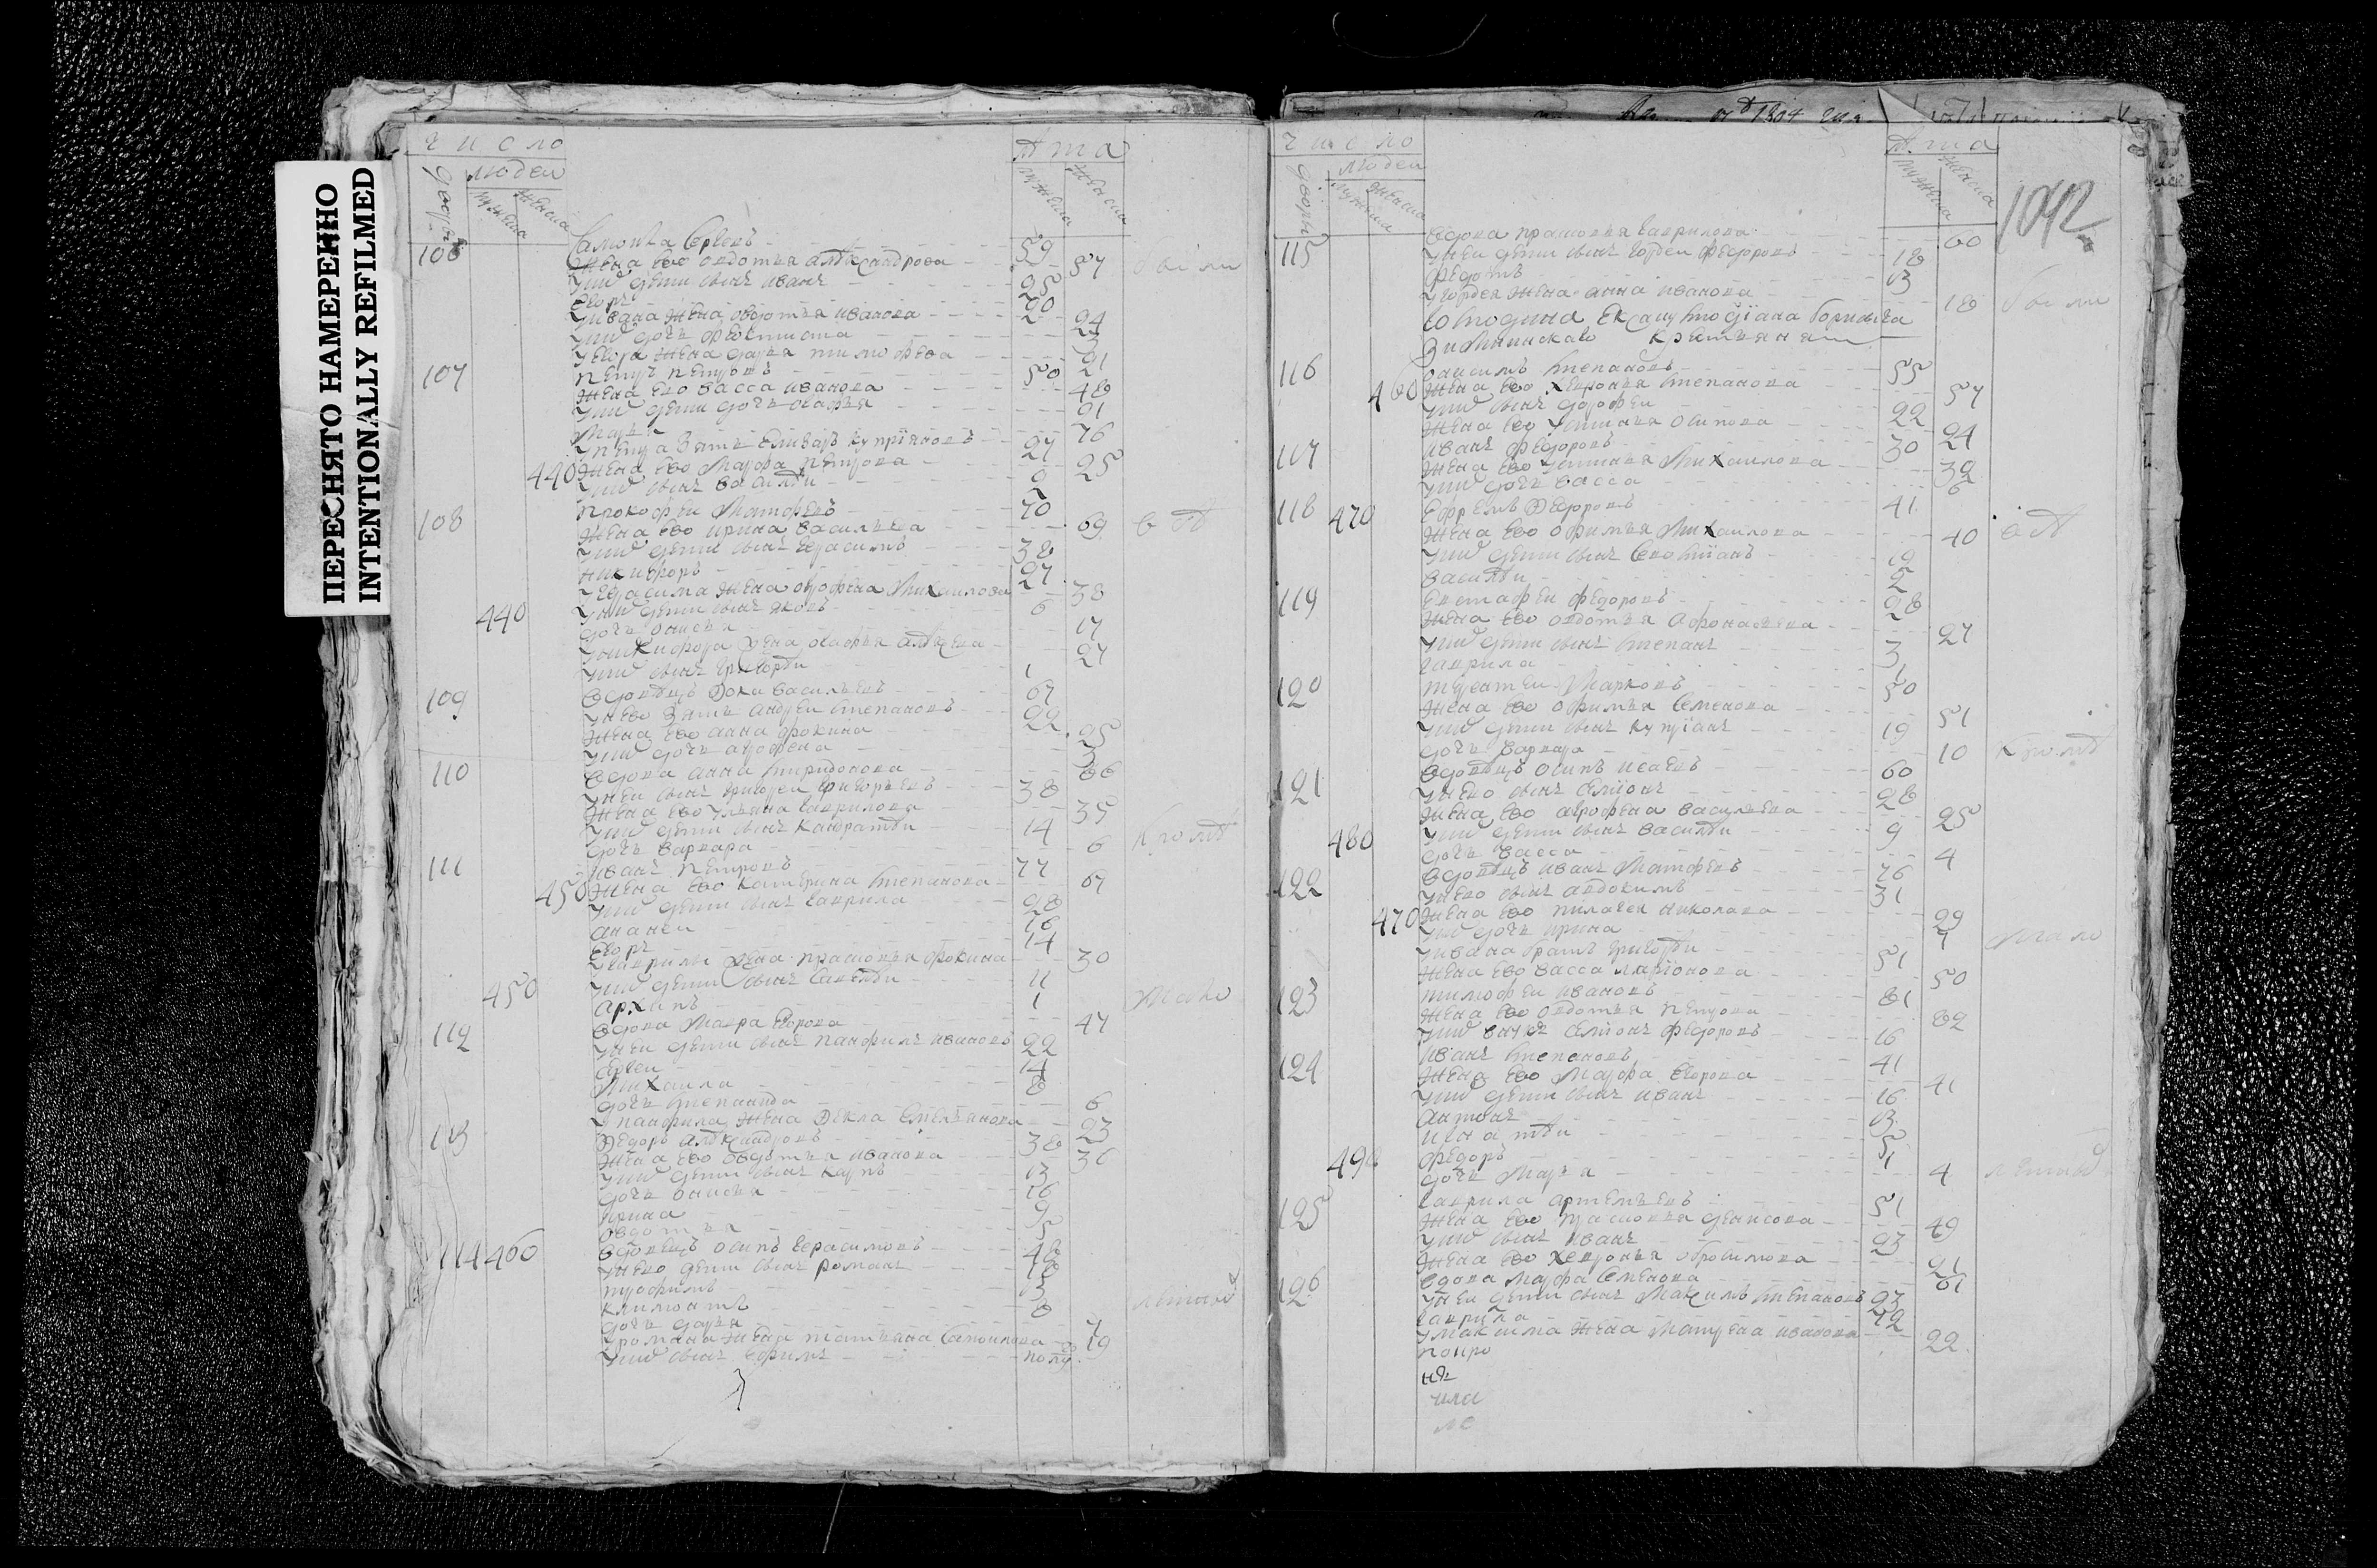 ПЕРЕСНЯТО НАМЕРЕННО
INTENTIONALLY REFILMED
число
люден
лѣта
Самойла Сергеевъ 59
106 жена ево овдотья алѣксандрова 57
у них дети сынъ иванъ 25
егоръ 20
у ивана жена овдотья иванова 24
у них дочь феоктиста
у егора жена дарья тимофеева 21
107 петръ петровъ 50
жена ево васса иванова 48
у них дети дочь огафья 21
марья 16
у петра зять елизаръ куприяновъ 27
440 жена ево марфа петрова 25
у них сынъ василѣи 2
108 прокофеи матфеевъ 70
жена ево ирина васильева 69
у них дети сынъ герасимъ 38
никифоръ 27
у герасима жена огрофена михаилова 38
440 у них дети сынъ яковъ 6
дочь онисья 17
у никифора жена огафья алѣксеева 27
у них сынъ григорѣи 1
109 вдовецъ фока васильевъ 67
у нево зять андреи степановъ 22
жена ево анна фокина 25
у них дочь огрофена 3
110 вдова анна спиридонова 66
у неи сынъ григореи григорьевъ 38
жена ево ульяна гаврилова 35
у них дети сынъ кандратѣи 14
дочь варвара 6
111 иванъ петровъ 77
450 жена ево катерина степанова 67
у них дети сынъ гаврила 28
ананеи 16
егоръ 14
у гаврилы жена прасковья фокина 30
у них дети сынъ савелѣи 11
450 архипъ 1
вдова мавра егорова 47
112 у неи дети сынъ панфилъ ивановъ 22
сергеи 14
михаила 8
дочь степанида 6
у панфила жена фекла емельянова 23
113 федоръ алѣксандровъ 38
жена ево овдотья иванова 36
у них дети сынъ карпъ 13
дочь онисья 16
ирина 9
овдотья 5
114 460 вдовецъ осипъ герасимовъ 48
у нево дети сынъ романъ 18
трофимъ 13
климонтъ 8
дочь дарья 7
у романа жена татьяна самоилова 19
у них сынъ ефимъ полу
1804
число
люден
лѣта
1092
вдова прасковья гаврилова 60
115 у неи дети сынъ гордеи федоровъ 18
федотъ 13
у гордея жена анна иванова 18
господина
крестьяня
116 онисимъ степановъ 55
460 жена ево хевронья степанова 57
у них сынъ дорофеи 22
жена ево устинья осипова 24
117 иванъ федоровъ 30
жена ево устинья михаилова 32
у них дочь васса 6
118 470 ефремъ федоровъ 41
жена ево офимья михаилова 40
у них дети сынъ севостіанъ 12
василѣи 2
119 евстафеи федоровъ 28
жена ево овдотья афонасьева 27
у них дети сынъ степанъ 3
гаврила 1
120 марковъ 50
жена ево офимья семенова 51
у них дети сынъ купріанъ 19
дочь варвара 10
121 вдовецъ осипъ исаевъ 60
у нево сынъ семіонъ 28
жена ево огрофена васильева 25
480 у них дети сынъ василѣи 9
дочь васса 4
122 вдовецъ иванъ матфеевъ 76
у нево сынъ авдокимъ 31
470 жена ево пилагея николаева 29
у них дочь ирина 7
у ивана братъ григорѣи 51
жена ево васса ларіонова 50
123 тимофеи ивановъ 81
жена ево овдотья петрова 82
у них внукъ семіонъ федоровъ 16
124 иванъ степановъ 41
жена ево марфа егорова 41
у них дети сынъ иванъ 16
антонъ 13
игнатѣи 5
490 федоръ 1
дочь марья 4
125 гаврила артемьевъ 51
жена ево прасковья денисова 49
у них сынъ иванъ 23
жена ево хевронья 21
126 вдова марфа семенова 61
у неи дети сынъ максимъ степановъ 23
гаврила 12
у максима жена матрена иванова 22